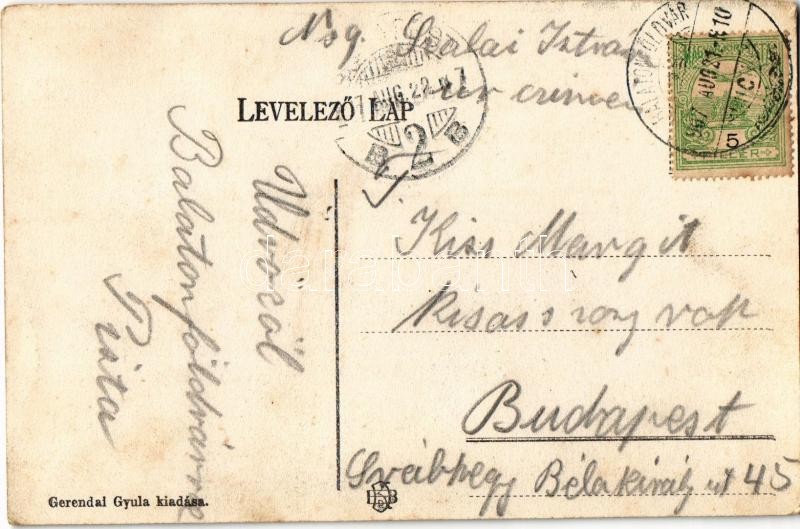 Nsg. Szalai István
úr címén
LEVELEZŐ LAP
BALATONFÖLDVÁR
907 AUG 21
AUG. 22.
B 2 B
5
FILLÉR
Kiss Margit
Kisasszony
Budapest
Svábhegy Béla király út 45
Üdvözöl
Balatonföldvárról
Pista
Gerendai Gyula kiadása.